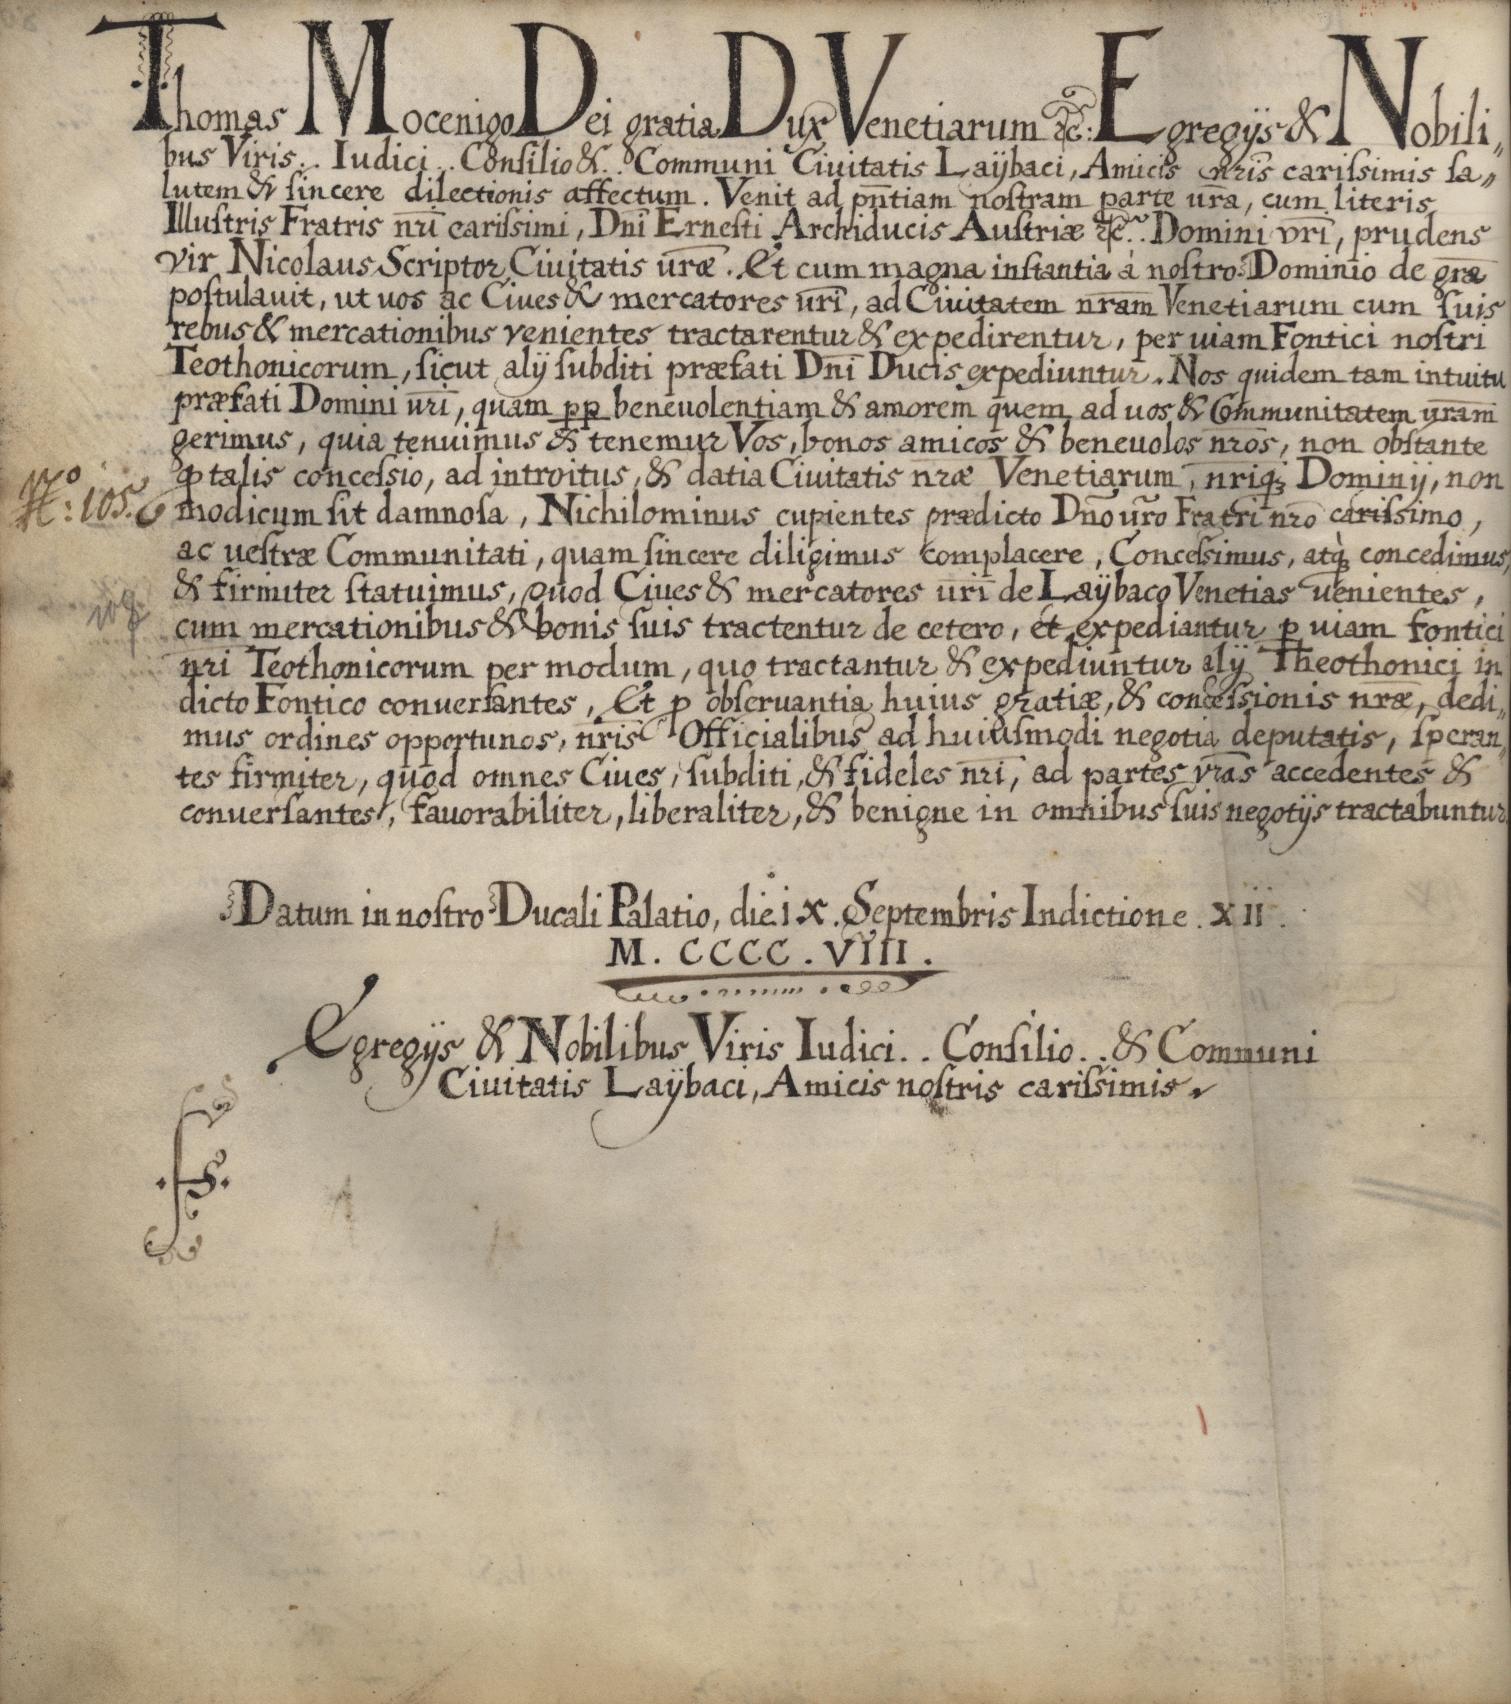 Thomas Mocenigo Dei gratia Dux Venetiarum &c: Egregijs & Nobili„
bus Viris.. Iudici.. Consilio &.. Communi Ciuitatis Laÿbaci, Amicis nr̄is cariſsimis ſa„
lutem & ſincere dilectionis affectum. Venit ad pn̄tiam nostram parte ur̄a, cum literis
Illuſtris Fratris nr̄i cariſsimi, Dn̄i Erneſti Archiducis Auſtriæ &c.. Domini vr̄i, prudens
vir Nicolaus Scriptor Ciuitatis ur̄æ. Et cum magna inſtantia à noſtro Dominio de gr̄a
poſtulauit, ut uos ac Ciues & mercatores ur̄i, ad Ciuitatem nr̄am Venetiarum cum ſuis
rebus & mercationibus venientes tractarentur & expedirentur, per uiam Fontici noſtri
Teothonicorum, ſicut alÿ ſubditi præfati Dn̄i Ducis expediuntur. Nos quidem tam intuitu
præfati Domini ur̄i, quam pp beneuolentiam & amorem quem ad uos & Communitatem vr̄am
gerimus, quia tenuimus & tenemur Vos, bonos amicos & beneuolos nr̄os, non obſtante
ꝙ talis conceſsio, ad introitus, & datia Ciuitatis nr̄æ Venetiarum, nr̄iqꝫ Dominÿ, non
Nº: 105.
modicum ſit damnoſa, Nichilominus cupientes prædicto Dn̄o ur̄o Fratri nr̄o cariſsimo,
ac ueſtræ Communitati, quam ſincere diligimus complacere, Conceſsimus, atqꝫ concedimus,
& firmiter ſtatuimus, quod Ciues & mercatores ur̄i de Laÿbaco Venetias uenientes,
cum mercationibus & bonis ſuis tractentur de cetero, et expediantur ꝑ uiam fontici
nr̄i Teothonicorum per modum, quo tractantur & expediuntur alÿ Theothonici in
dicto Fontico conuerſantes, Et ꝓ obſeruantia huius gratiæ, & conceſsionis nr̄æ, dedi„
mus ordines opportunos, nr̄is Officialibus ad huiuſmodi negotia deputatis, ſperan„
tes firmiter, quod omnes Ciues, ſubditi, & fideles nr̄i, ad partes vr̄as accedentes &
conuerſantes, fauorabiliter, liberaliter, & benigne in omnibus ſuis negotijs tractabuntur.
Datum in noſtro Ducali Palatio, die ix. Septembris Indictione. XII.
M. CCCC. VIII.
Egregijs & Nobilibus Viris Iudici.. Conſilio.. & Communi
Ciuitatis Laÿbaci, Amicis noſtris cariſsimis.